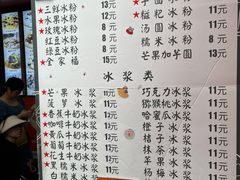 三鲜冰粉 13元
水果冰粉 12元
★玫瑰冰粉 8元
红豆冰粉 8元
绿豆冰粉 8元
全家福 15元
★糍粑冰粉
汤圆冰粉
糯米冰粉
芒果加芋圆
冰浆类
芒果冰浆 11元
菠萝冰浆 11元
★香蕉牛奶冰浆 11元
★咖啡牛奶冰浆 11元
★黄瓜牛奶冰浆 11元
★葡萄牛奶冰浆 11元
★花生牛奶冰浆 11元
黑米冰浆
巧克力冰浆 11元
猕猴桃冰浆 11元
哈密瓜冰浆 11元
橙子冰浆 11元
桔子冰浆 11元
抹茶冰浆 11元
苹果冰浆 11元
杨梅冰浆 11元
糯米冰浆